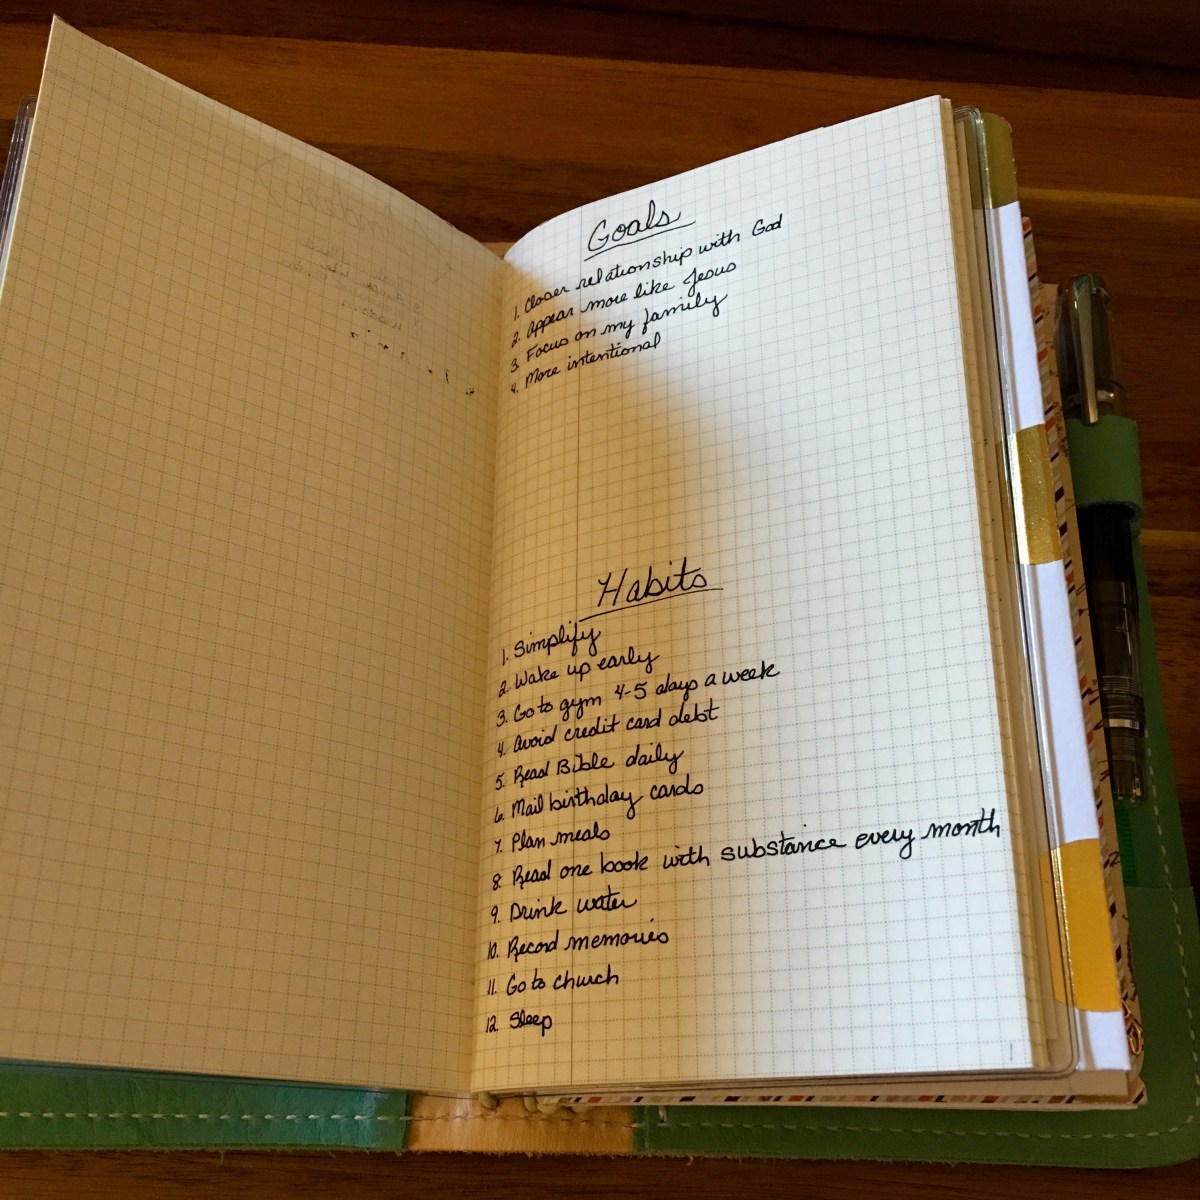 Goals
1. Closer relationship with God
2. Appear more like Jesus
3. Focus on my family
4. More intentional
Habits
1. Simplify
2. Wake up early
3. Go to gym 4-5 days a week
4. Avoid credit card debt
5. Read Bible daily
6. Mail birthday cards
7. Plan meals
8. Read one book with substance every month
9. Drink water
10. Record memories
11. Go to church
12. Sleep